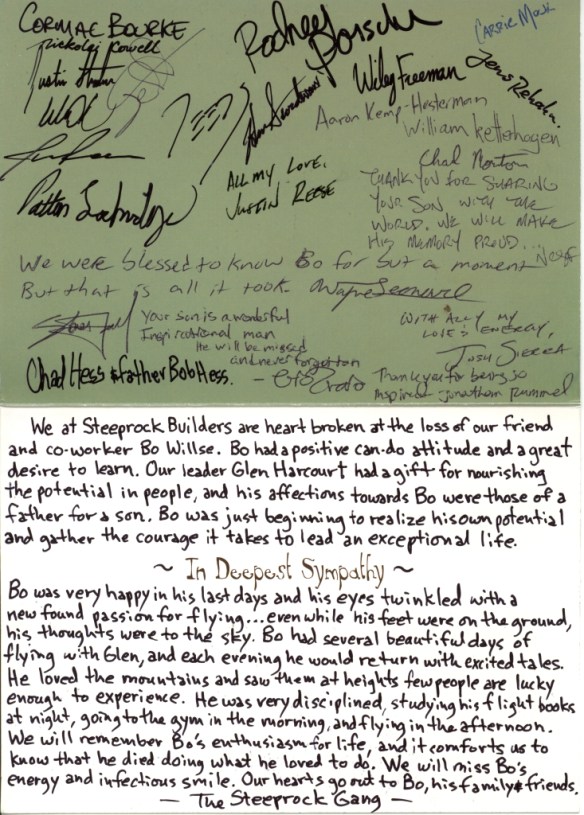 CORMAC BOURKE
Rickolai Powell
Justin
Rodney
CARRIE MONK
Wiley Freeman
Jens Rehdin.
Aaron Kemp-Hesterman
William Kettenhogen
Chad Norton
ALL MY LOVE,
JUSTIN REESE
Patton
THANK YOU FOR SHARING
YOUR SON WITH THE
WORLD. WE WILL MAKE
HIS MEMORY PROUD...
We were blessed to know Bo for but a moment
But that is all it took.
Your son is a wonderful
Inspirational man
He will be missed
and never forgotten
WITH ALL MY
LOVE & ENERGY,
JOSH SIERRA
Chad Hess & father Bob Hess.
Thank you to being so
inspired - Jonathan Rummel
We at Steeprock Builders are heart broken at the loss of our friend
and co-worker Bo Willse. Bo had a positive can-do attitude and a great
desire to learn. Our leader Glen Harcourt had a gift for nourishing
the potential in people, and his affections towards Bo were those of a
father for a son. Bo was just beginning to realize his own potential
and gather the courage it takes to lead an exceptional life.
~ In Deepest Sympathy ~
Bo was very happy in his last days and his eyes twinkled with a
new found passion for flying...even while his feet were on the ground,
his thoughts were to the sky. Bo had several beautiful days of
flying with Glen, and each evening he would return with excited tales.
He loved the mountains and saw them at heights few people are lucky
enough to experience. He was very disciplined, studying his flight books
at night, going to the gym in the morning, and flying in the afternoon.
We will remember Bo's enthusiasm for life, and it comforts us to
know that he died doing what he loved to do. We will miss Bo's
energy and infectious smile. Our hearts go out to Bo, his family & friends.
— The Steeprock Gang —